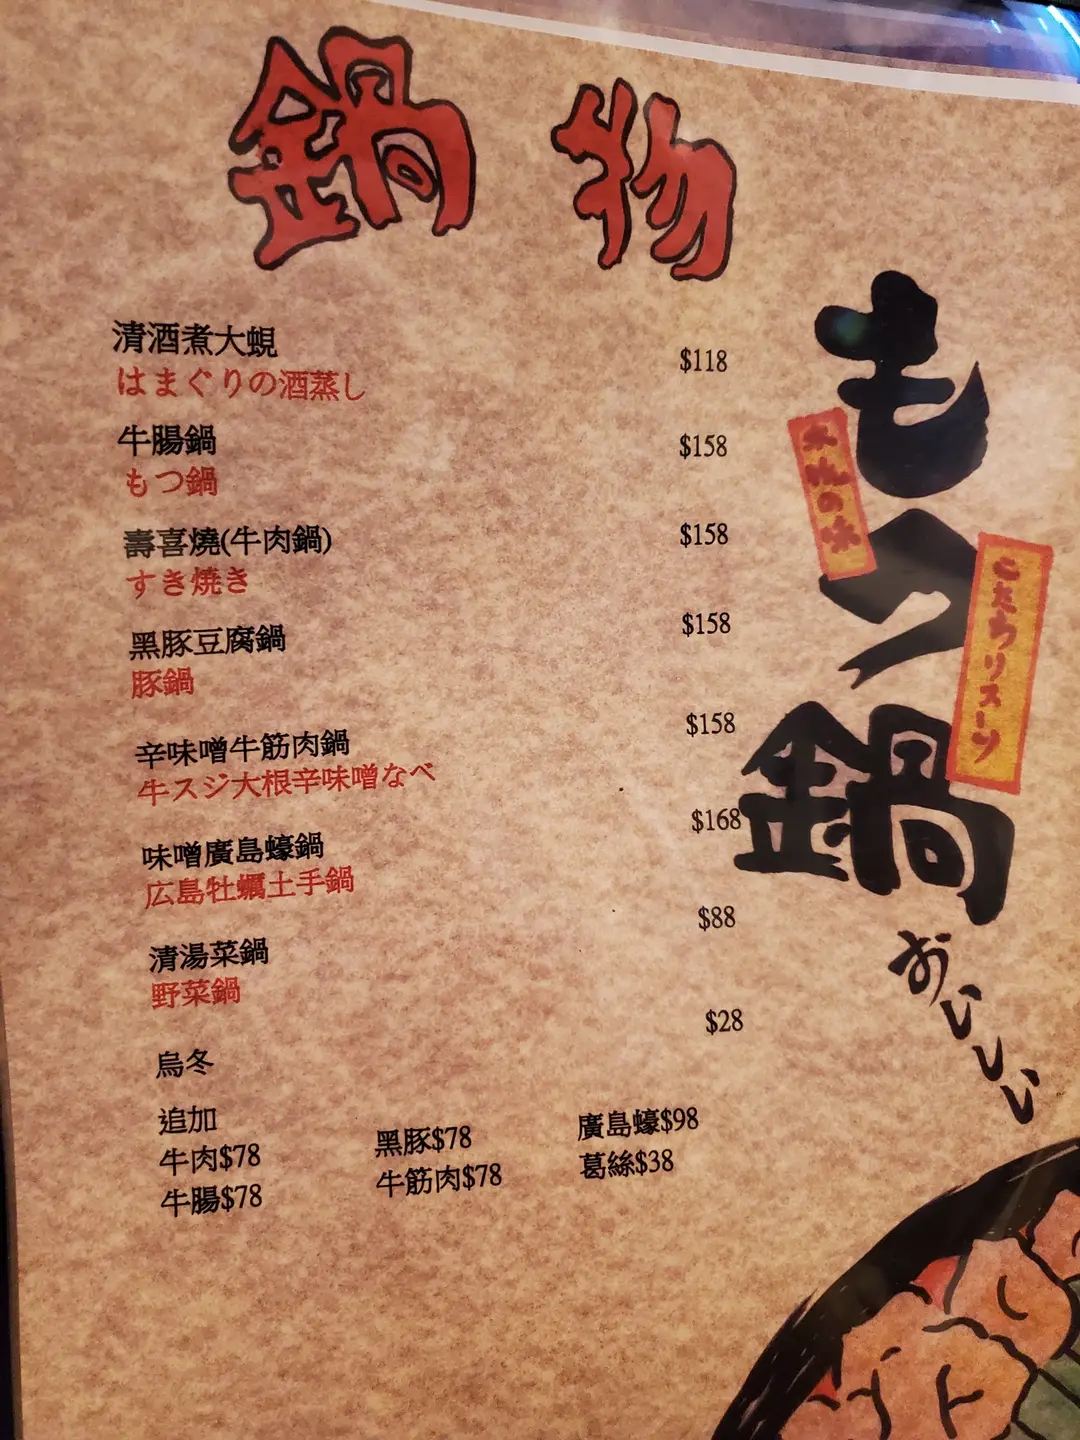 鍋物
清酒煮大蜆 $118
はまぐりの酒蒸し
牛腸鍋 $158
もつ鍋
壽喜燒(牛肉鍋) $158
すき焼き
黑豚豆腐鍋 $158
豚鍋
辛味噌牛筋肉鍋 $158
牛スジ大根辛味噌なべ
味噌廣島蠔鍋 $168
広島牡蠣土手鍋
清湯菜鍋 $88
野菜鍋
烏冬 $28
追加
牛肉$78 黑豚$78 廣島蠔$98
牛腸$78 牛筋肉$78 葛絲$38
もつ鍋
おいしい